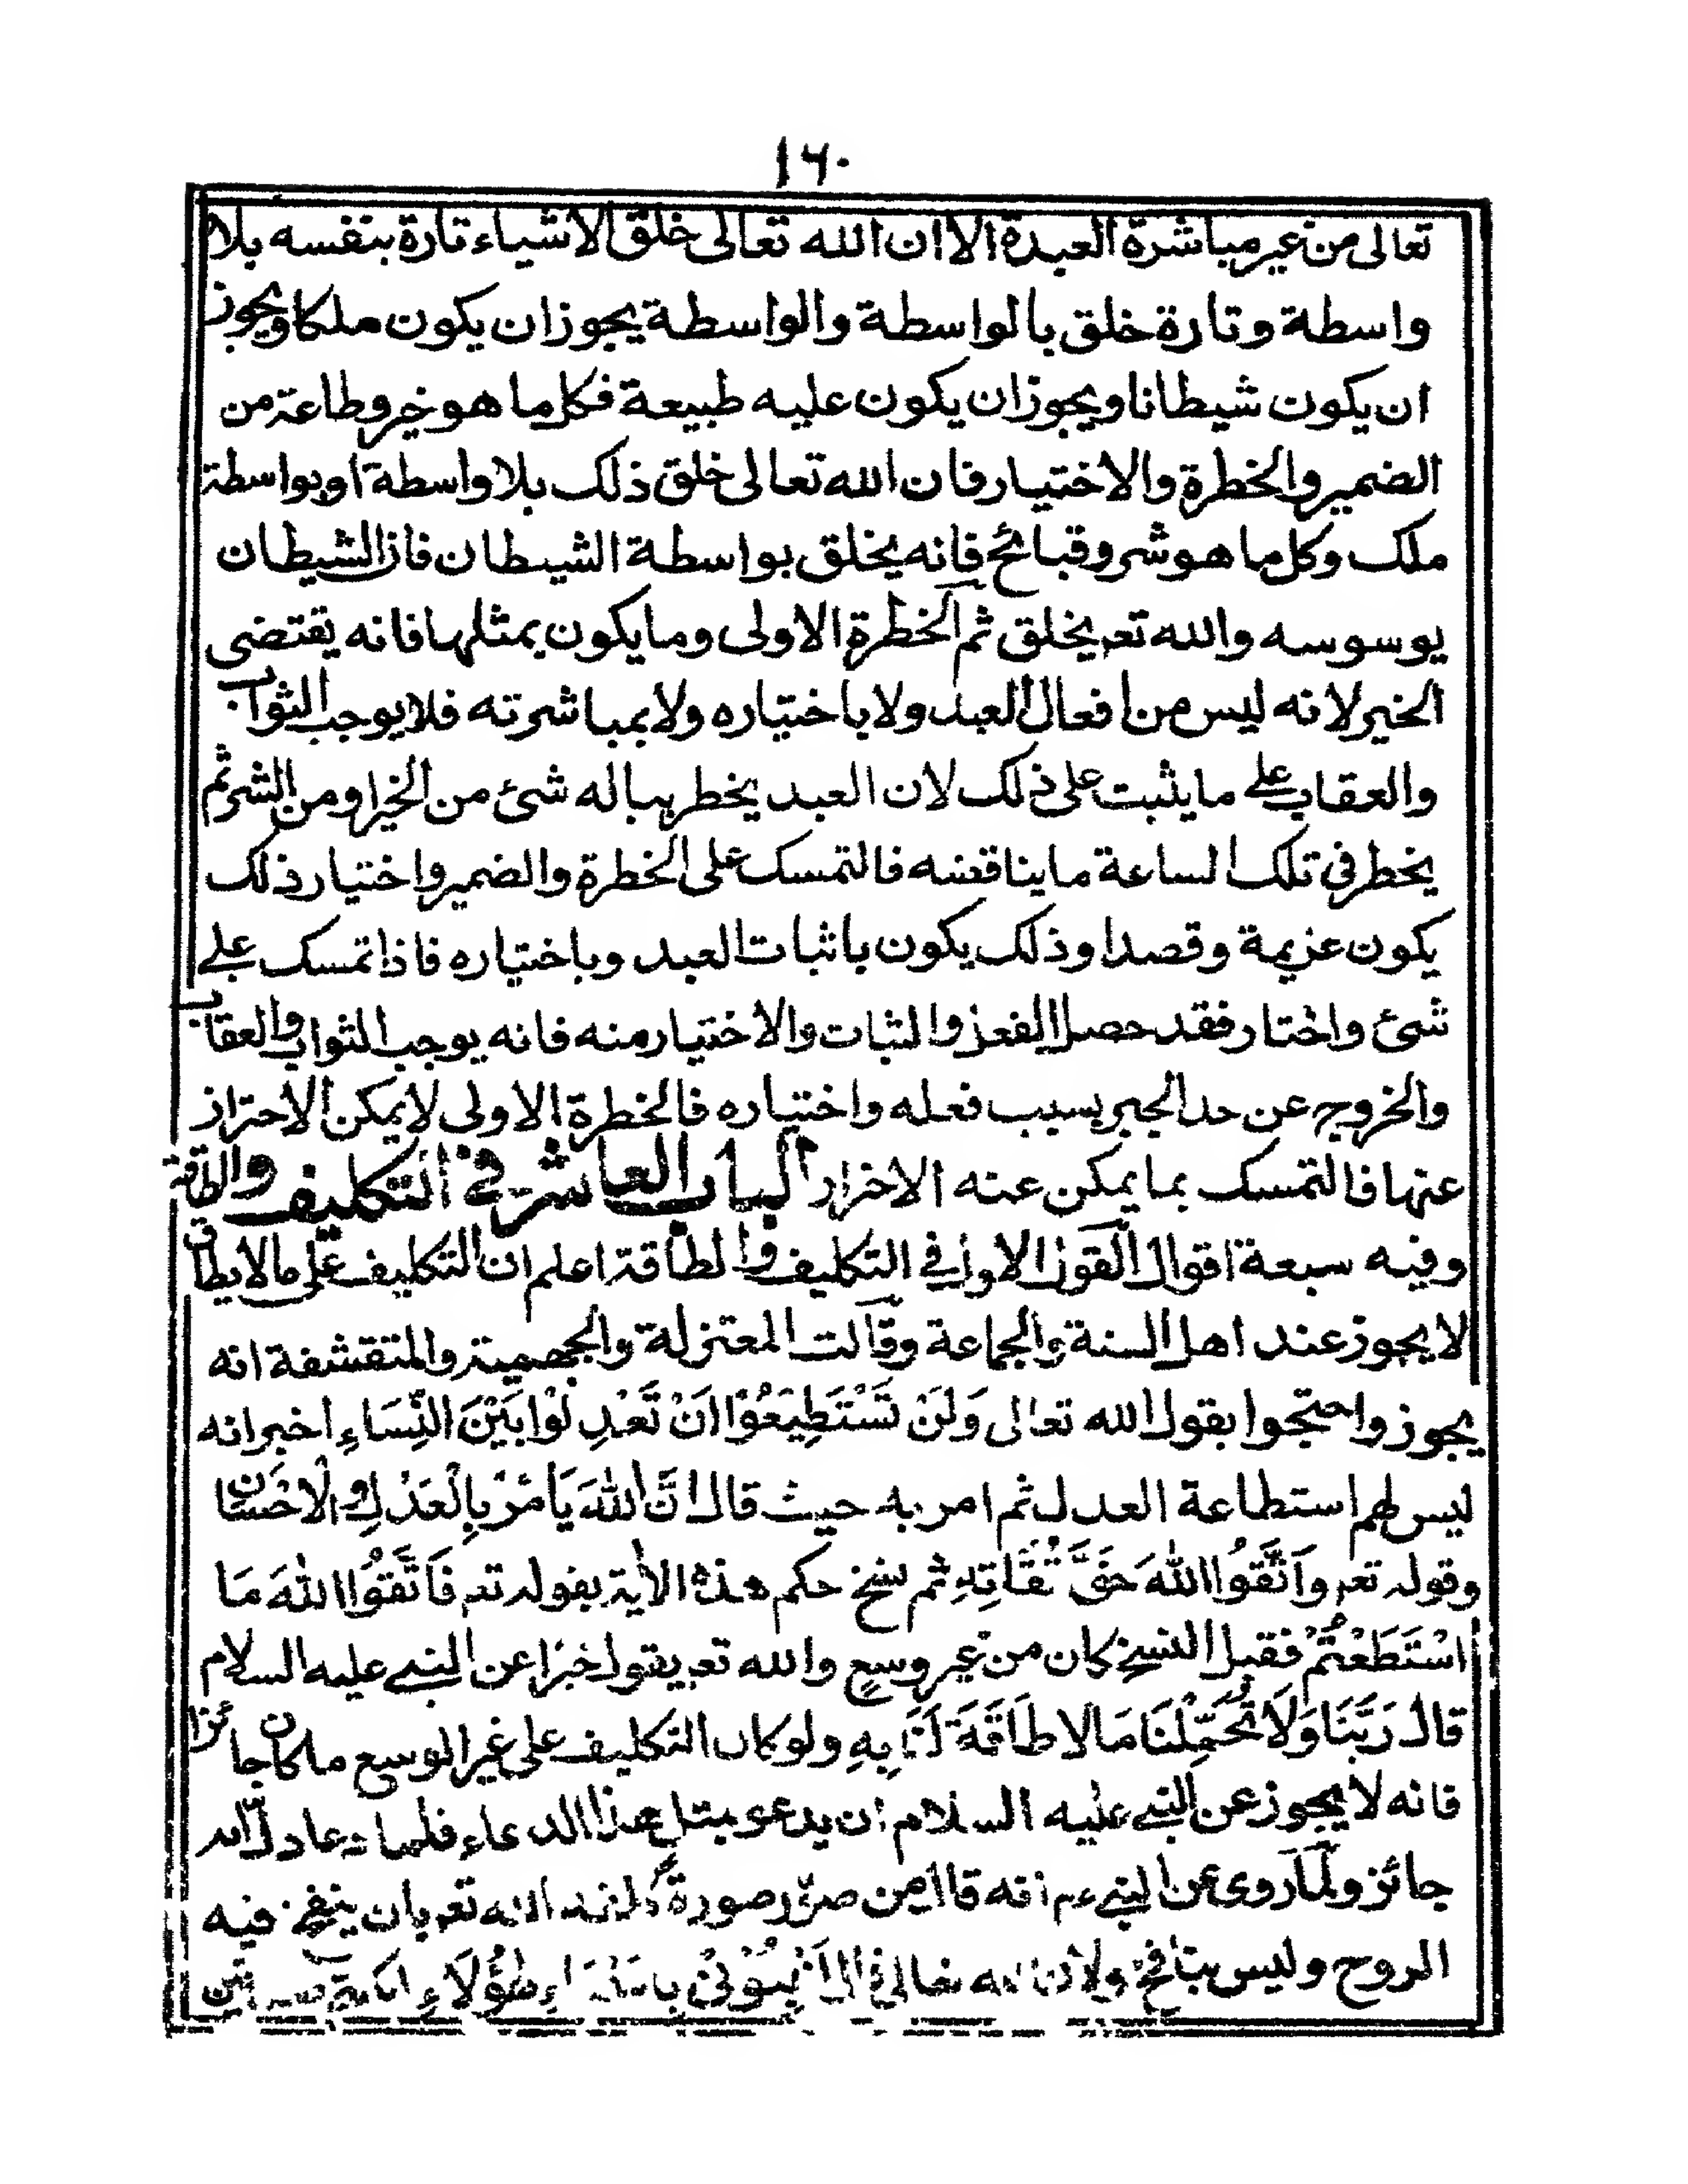 ١٦٠
تعالى من غير مباشرة العبدة الا ان الله تعالى خلق الاشياء تارة بنفسه بلا
واسطة وتارة خلق بالواسطة والواسطة يجوز ان يكون ملكا ويجوز
ان يكون شيطانا ويجوز ان يكون عليه طبيعة فكل ما هو خير وطاعة من
الضمير والخطرة والاختيار فان الله تعالى خلق ذلك بلا واسطة او بواسطة
ملك وكل ما هو شر وقبائح فانه يخلق بواسطة الشيطان فان الشيطان
يوسوسه والله تعـ يخلق ثم الخطرة الاولى وما يكون بمثلها فانه يقتضى
الخير لانه ليس من افعال العبد ولا باختياره ولا بمباشرته فلا يوجب الثواب
والعقاب على ما يثبت على ذلك لان العبد يخطر بباله شئ من الخير او من الشر ثم
يخطر فى تلك الساعة ما يناقضه فالتمسك على الخطرة والضمير واختيار ذلك
يكون عزيمة وقصدا وذلك يكون باثبات العبد وباختياره فاذا تمسك على
شئ واختار فقد حصل الفعل والثبات والاختيار منه فانه يوجب الثواب والعقاب
والخروج عن حد الجبر بسبب فعله واختياره فالخطرة الاولى لا يمكن الاحتراز
عنها فالتمسك بما يمكن عنه الاخرار الباب العاشر فى التكليف والطاقة
وفيه سبعة اقوال القول الاول فى التكليف والطاقة اعلم ان التكليف على ما لا يطاق
لا يجوز عند اهل السنة والجماعة وقالت المعتزلة والجهمية والمتقشفة انه
يجوز واحتجوا بقول الله تعالى وَلَنْ تَسْتَطِيْعُوْا اَنْ تَعْدِلُوْا بَيْنَ النِّسَاءِ اخبر انه
ليس لهم استطاعة العدل ثم امر به حيث قال اِنَّ اللهَ يَأمُرُ بِالْعَدْلِ وَالْاِحْسَانِ
وقوله تعـ وَاتَّقُوا اللهَ حَقَّ تُقَاتِهِ ثم نسخ حكم هذه الاية بقوله تعـ فَاتَّقُوا اللهَ مَا
اسْتَطَعْتُمْ فقبل النسخ كان من غير وسع والله تعـ يقول خبرا عن النبى عليه السلام
قال رَبَّنَا وَلَا تُحَمِّلْنَا مَا لَا طَاقَةَ لَنَا بِهِ ولو كان التكليف على غير الوسع ما كان جائزا
فانه لا يجوز عن النبى عليه السلام ان يدعو بمثل هذا الدعاء فلما دعا دل انه
جائز ولما روى عن النبى عم انه قال من صوّر صورة كلفه الله تعـ بان ينفخ فيه
الروح وليس بنافخ ولان الله تعالى قال اَنْبِئُوْنِىْ بِاَسْمَاءِ هٰؤُلَاءِ